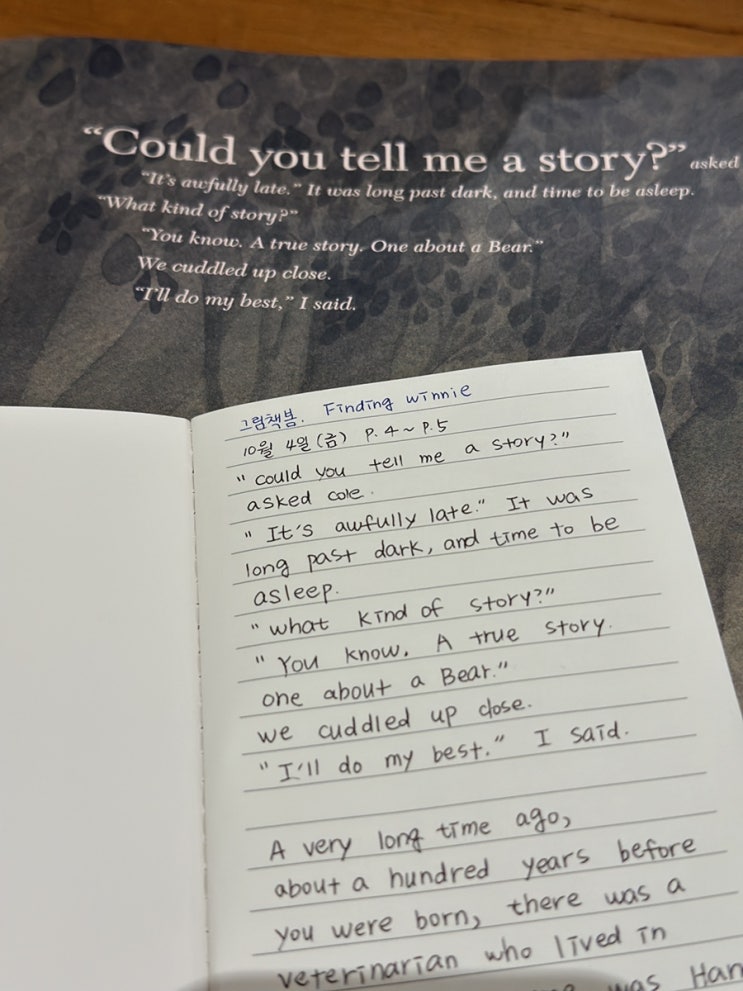 “Could you tell me a story?” asked
“It's awfully late.” It was long past dark, and time to be asleep.
“What kind of story?”
“You know. A true story. One about a Bear.”
We cuddled up close.
“I'll do my best,” I said.
그림책봄. Finding winnie
10월 4일 (금) P. 4 ~ P. 5
" could you tell me a story?"
asked cole.
" It's awfully late." It was
long past dark, and time to be
asleep.
" what kind of story?"
" You know. A true story.
one about a Bear."
we cuddled up close.
" I'll do my best." I said.
A very long time ago,
about a hundred years before
you were born, there was a
veterinarian who lived in
was Har